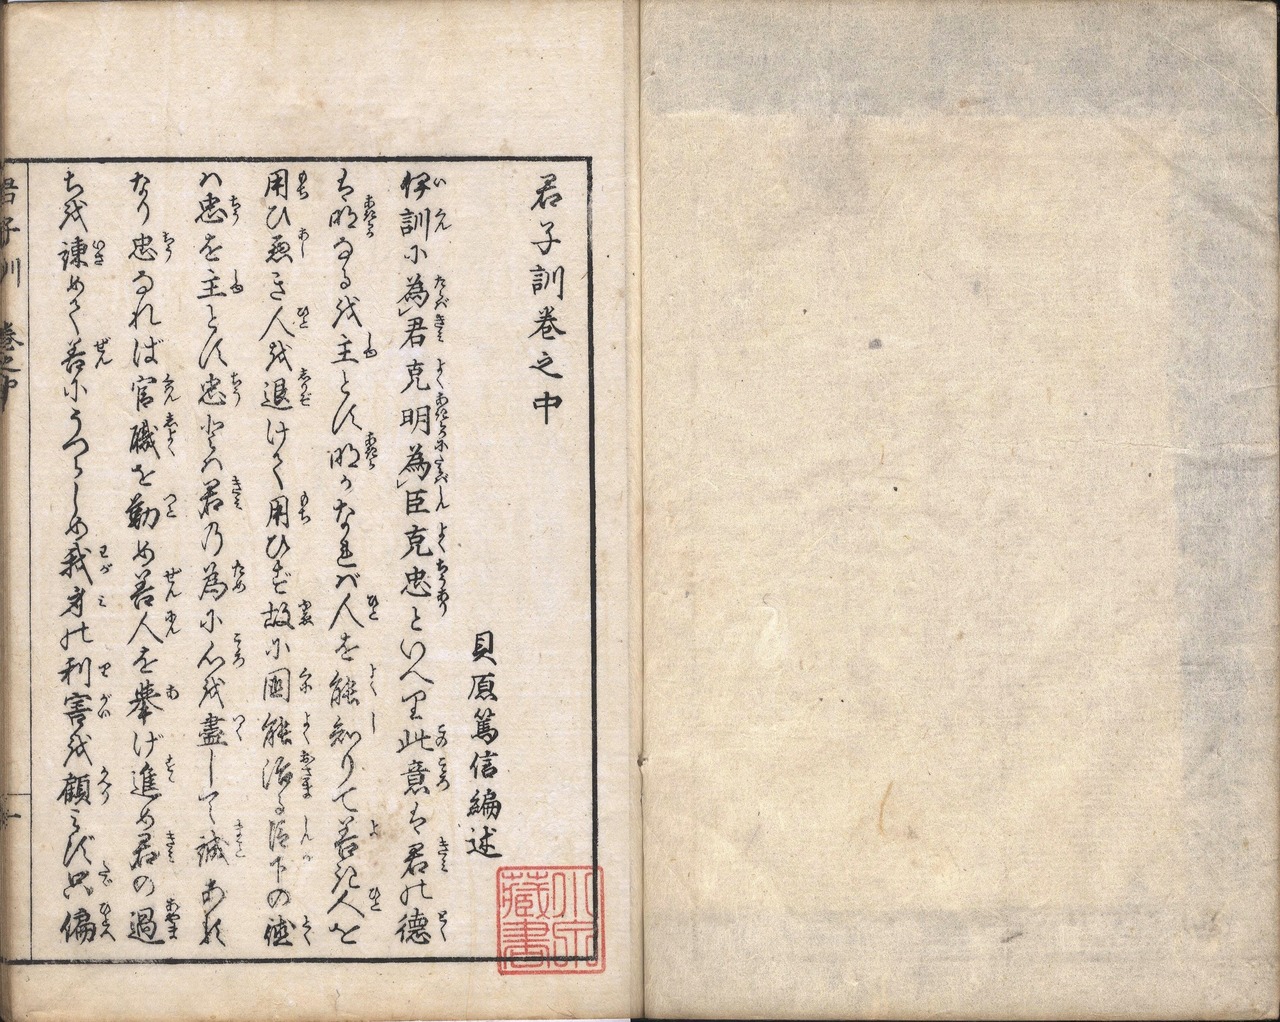 君子訓巻之中
貝原篤信編述
伊訓に為君克明為臣克忠といへり此意は君の徳
は明なるを主とす明かなれバ人を能知りて善き人を
用ひ悪き人を退けて用ひず故に国能治る臣下の徳
ハ忠を主とす忠とハ君の為に心を盡して誠ある
なり忠なれば官職を勤め善人を挙げ進め君の過
ちを諌めて善にうつらしめ我身の利害を顧みず只偏
君子訓 巻之中 一
小宗蔵書